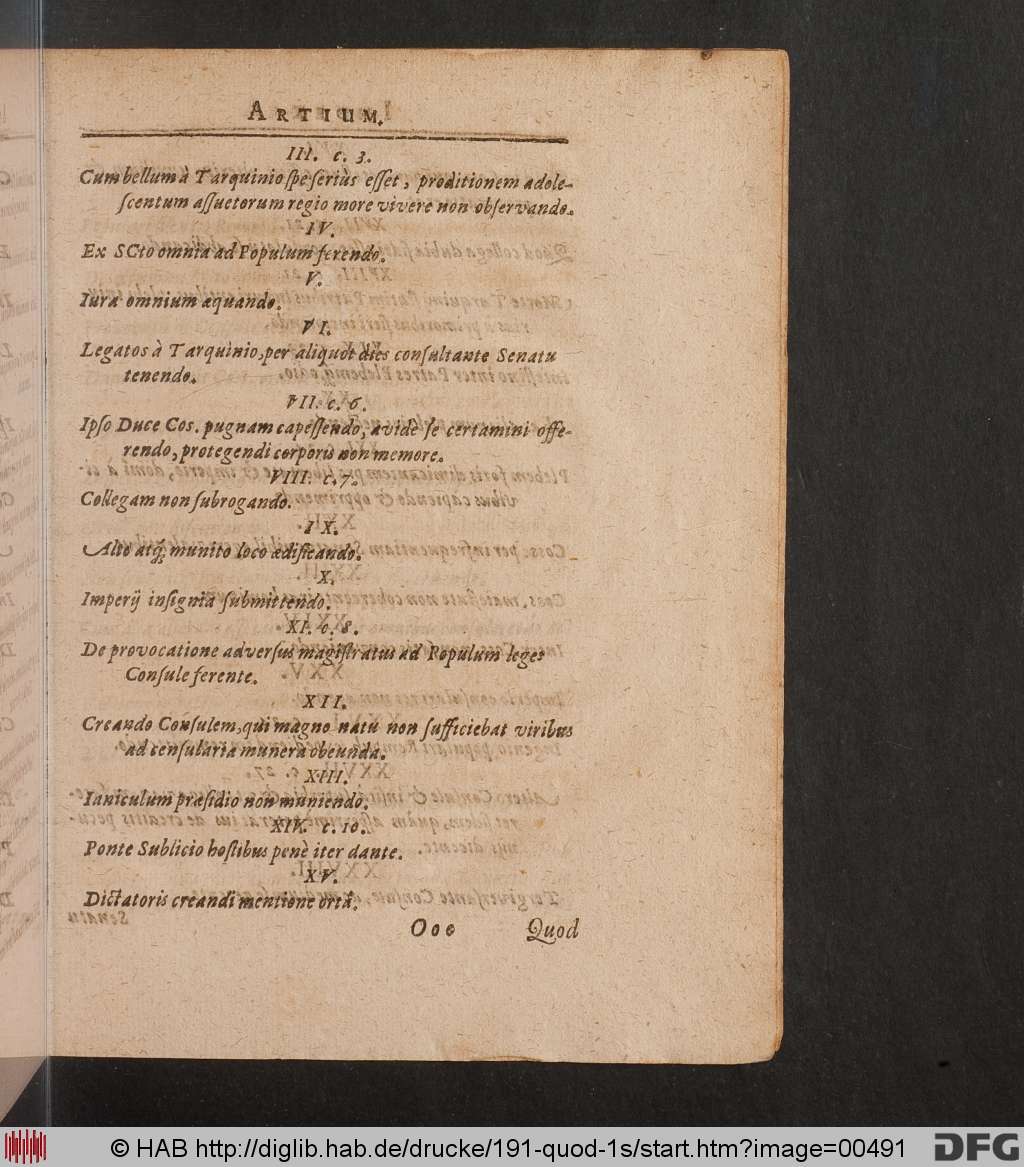 ARTIUM.
III. c. 3.
Cum bellum à Tarquinio spe seriùs esset, proditionem adole-
scentum assuetorum regio more vivere non observando.
IV.
Ex SCto omnia ad Populum ferendo.
V.
Iura omnium æquando.
VI.
Legatos à Tarquinio, per aliquot dies consultante Senatu
tenendo.
VII. c. 6.
Ipso Duce Cos. pugnam capessendo, avidè se certamini offe-
rendo, protegendi corporis non memore.
VIII. c. 7.
Collegam non subrogando.
IX.
Alto atq; munito loco ædificando.
X.
Imperij insignia submittendo.
XI. c. 8.
De provocatione adversus magistratus ad Populum leges
Consule ferente.
XII.
Creando Consulem, qui magno natu non sufficiebat viribus
ad censularia munera obeunda.
XIII.
Ianiculum præsidio non muniendo.
XIV. c. 10.
Ponte Sublicio hostibus penè iter dante.
XV.
Dictatoris creandi mentione ortâ.
Ooo Quod
© HAB http://diglib.hab.de/drucke/191-quod-1s/start.htm?image=00491
DFG